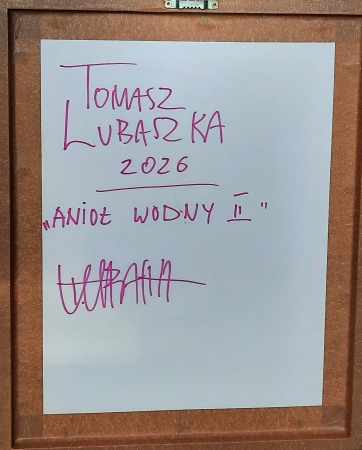 TOMASZ
LUBASZKA
2026
„ANIOŁ WODNY II"